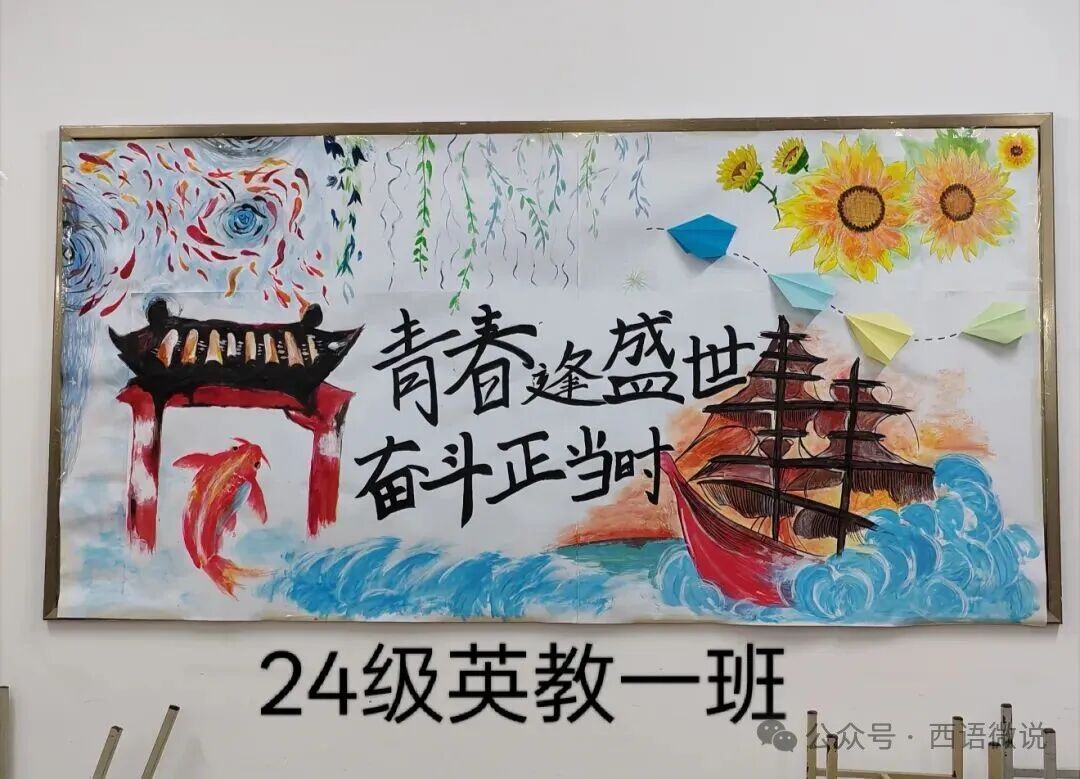 青春逢盛世
奋斗正当时
24级英教一班
公众号·西语微说